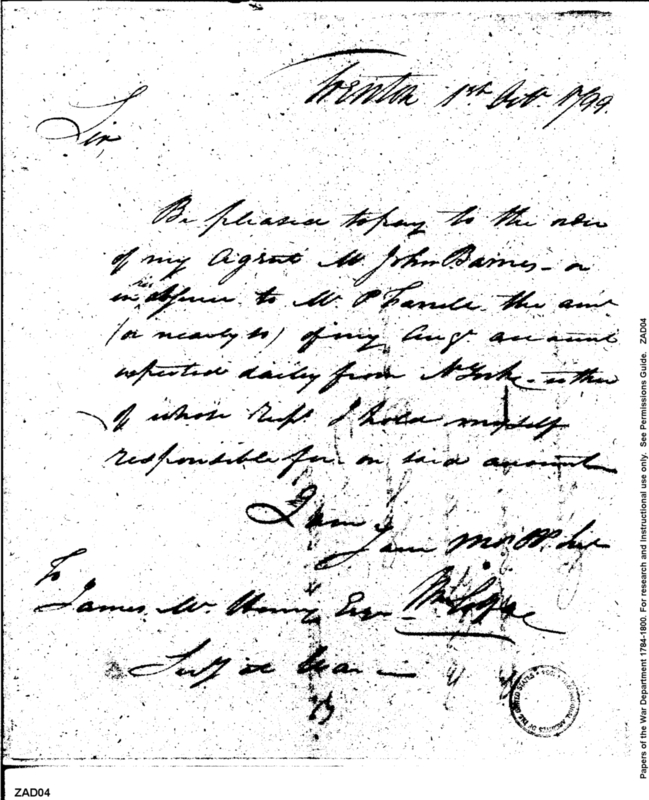 Trenton 1st Octr. 1799.
Sir,
Be pleased to pay to the order
of my Agent Mr John Barnes - or
in his absence to Mr P Farrell the amt
(or nearly so) of my Augt account
expected daily from N York - either
of whose rect I hold myself
responsible for on said account
I am
Sir
To
James Mc Henry Esqr
Secy at War
ZAD04
Papers of the War Department 1784-1800. For research and Instructional use only. See Permissions Guide. ZAD04